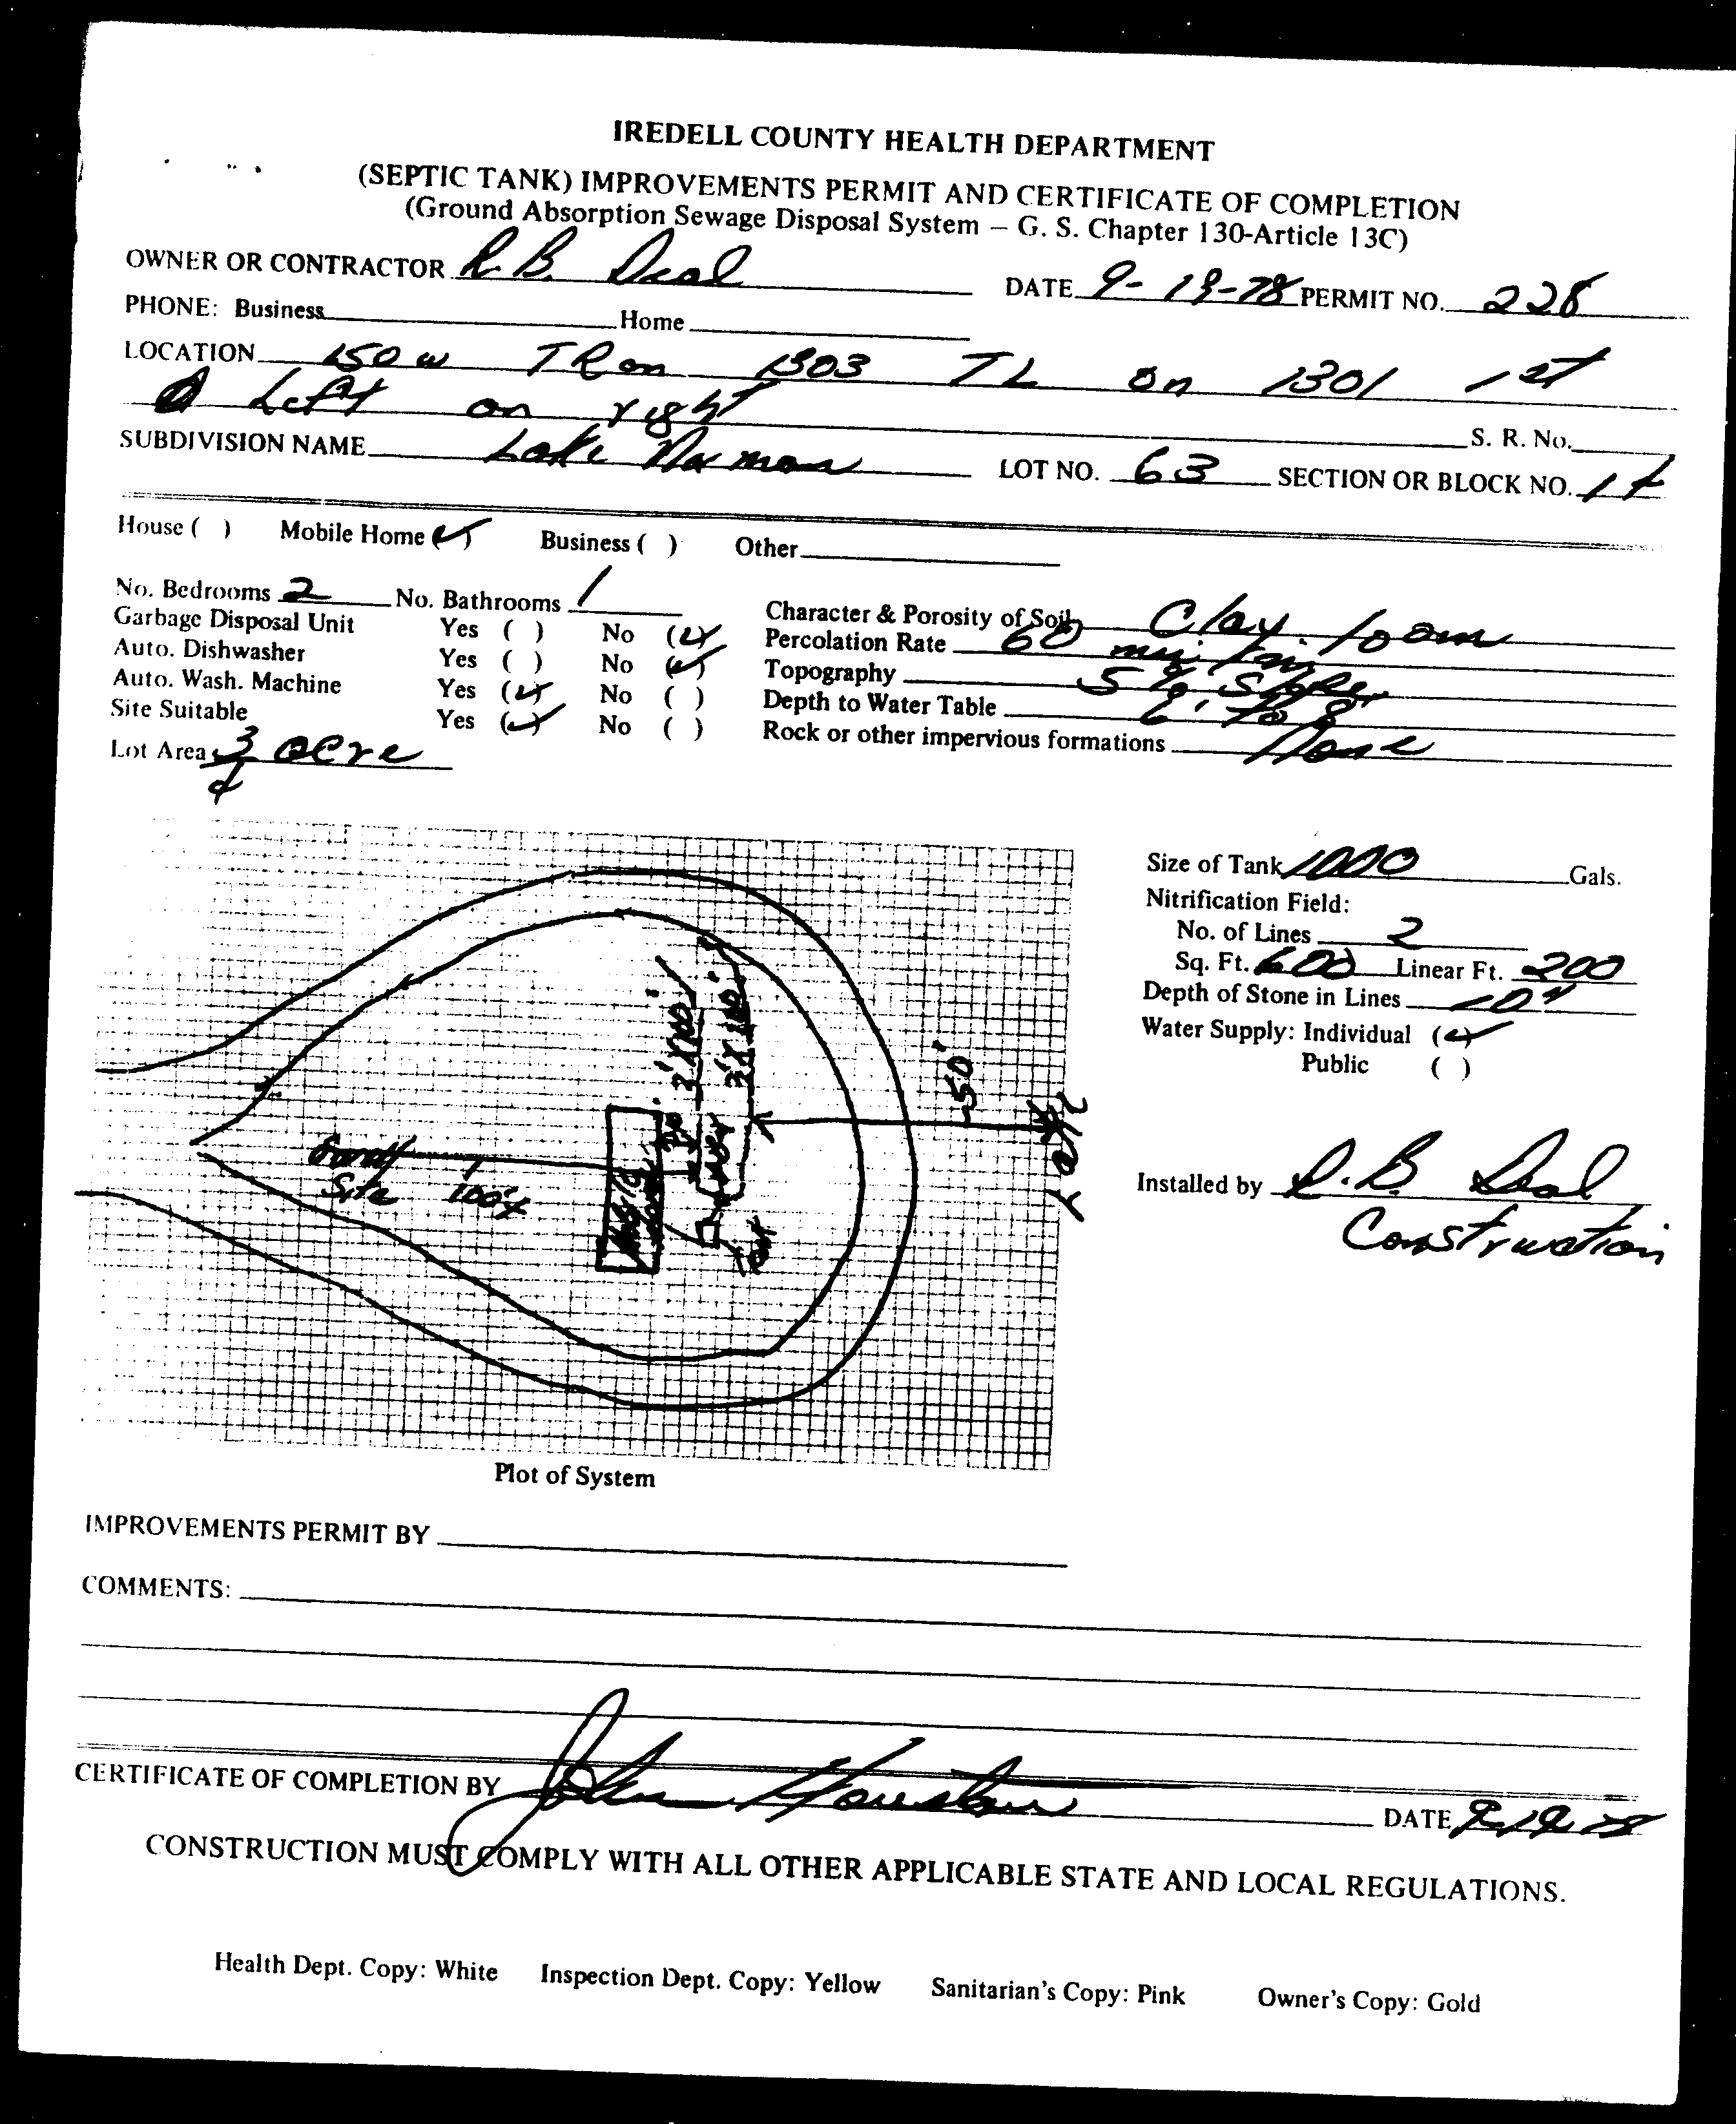 IREDELL COUNTY HEALTH DEPARTMENT
(SEPTIC TANK) IMPROVEMENTS PERMIT AND CERTIFICATE OF COMPLETION
(Ground Absorption Sewage Disposal System – G. S. Chapter 130-Article 13C)
OWNER OR CONTRACTOR R. B. Deal DATE 9-19-78 PERMIT NO. 228
PHONE: Business Home
LOCATION 150 w TR on 1303 TL on 1301 1st
Left on right S. R. No.
SUBDIVISION NAME Lake Norman LOT NO. 63 SECTION OR BLOCK NO.
House ( ) Mobile Home (✓) Business ( ) Other
No. Bedrooms 2 No. Bathrooms 1
Garbage Disposal Unit Yes ( ) No (✓)
Auto. Dishwasher Yes ( ) No (✓)
Auto. Wash. Machine Yes (✓) No ( )
Site Suitable Yes (✓) No ( )
Lot Area 3/4 acre
Character & Porosity of Soil Clay loam
Percolation Rate 60 min/in
Topography 5% slope
Depth to Water Table 6' to 8'
Rock or other impervious formations None
Size of Tank 1000 Gals.
Nitrification Field:
No. of Lines 2
Sq. Ft. 600 Linear Ft. 200
Depth of Stone in Lines 10"
Water Supply: Individual (✓)
Public ( )
Installed by R. B. Deal
Construction
3'X100'
3'X100'
50'
Site 100'
Plot of System
IMPROVEMENTS PERMIT BY
COMMENTS:
CERTIFICATE OF COMPLETION BY John Houston DATE 9-19-78
CONSTRUCTION MUST COMPLY WITH ALL OTHER APPLICABLE STATE AND LOCAL REGULATIONS.
Health Dept. Copy: White Inspection Dept. Copy: Yellow Sanitarian's Copy: Pink Owner's Copy: Gold